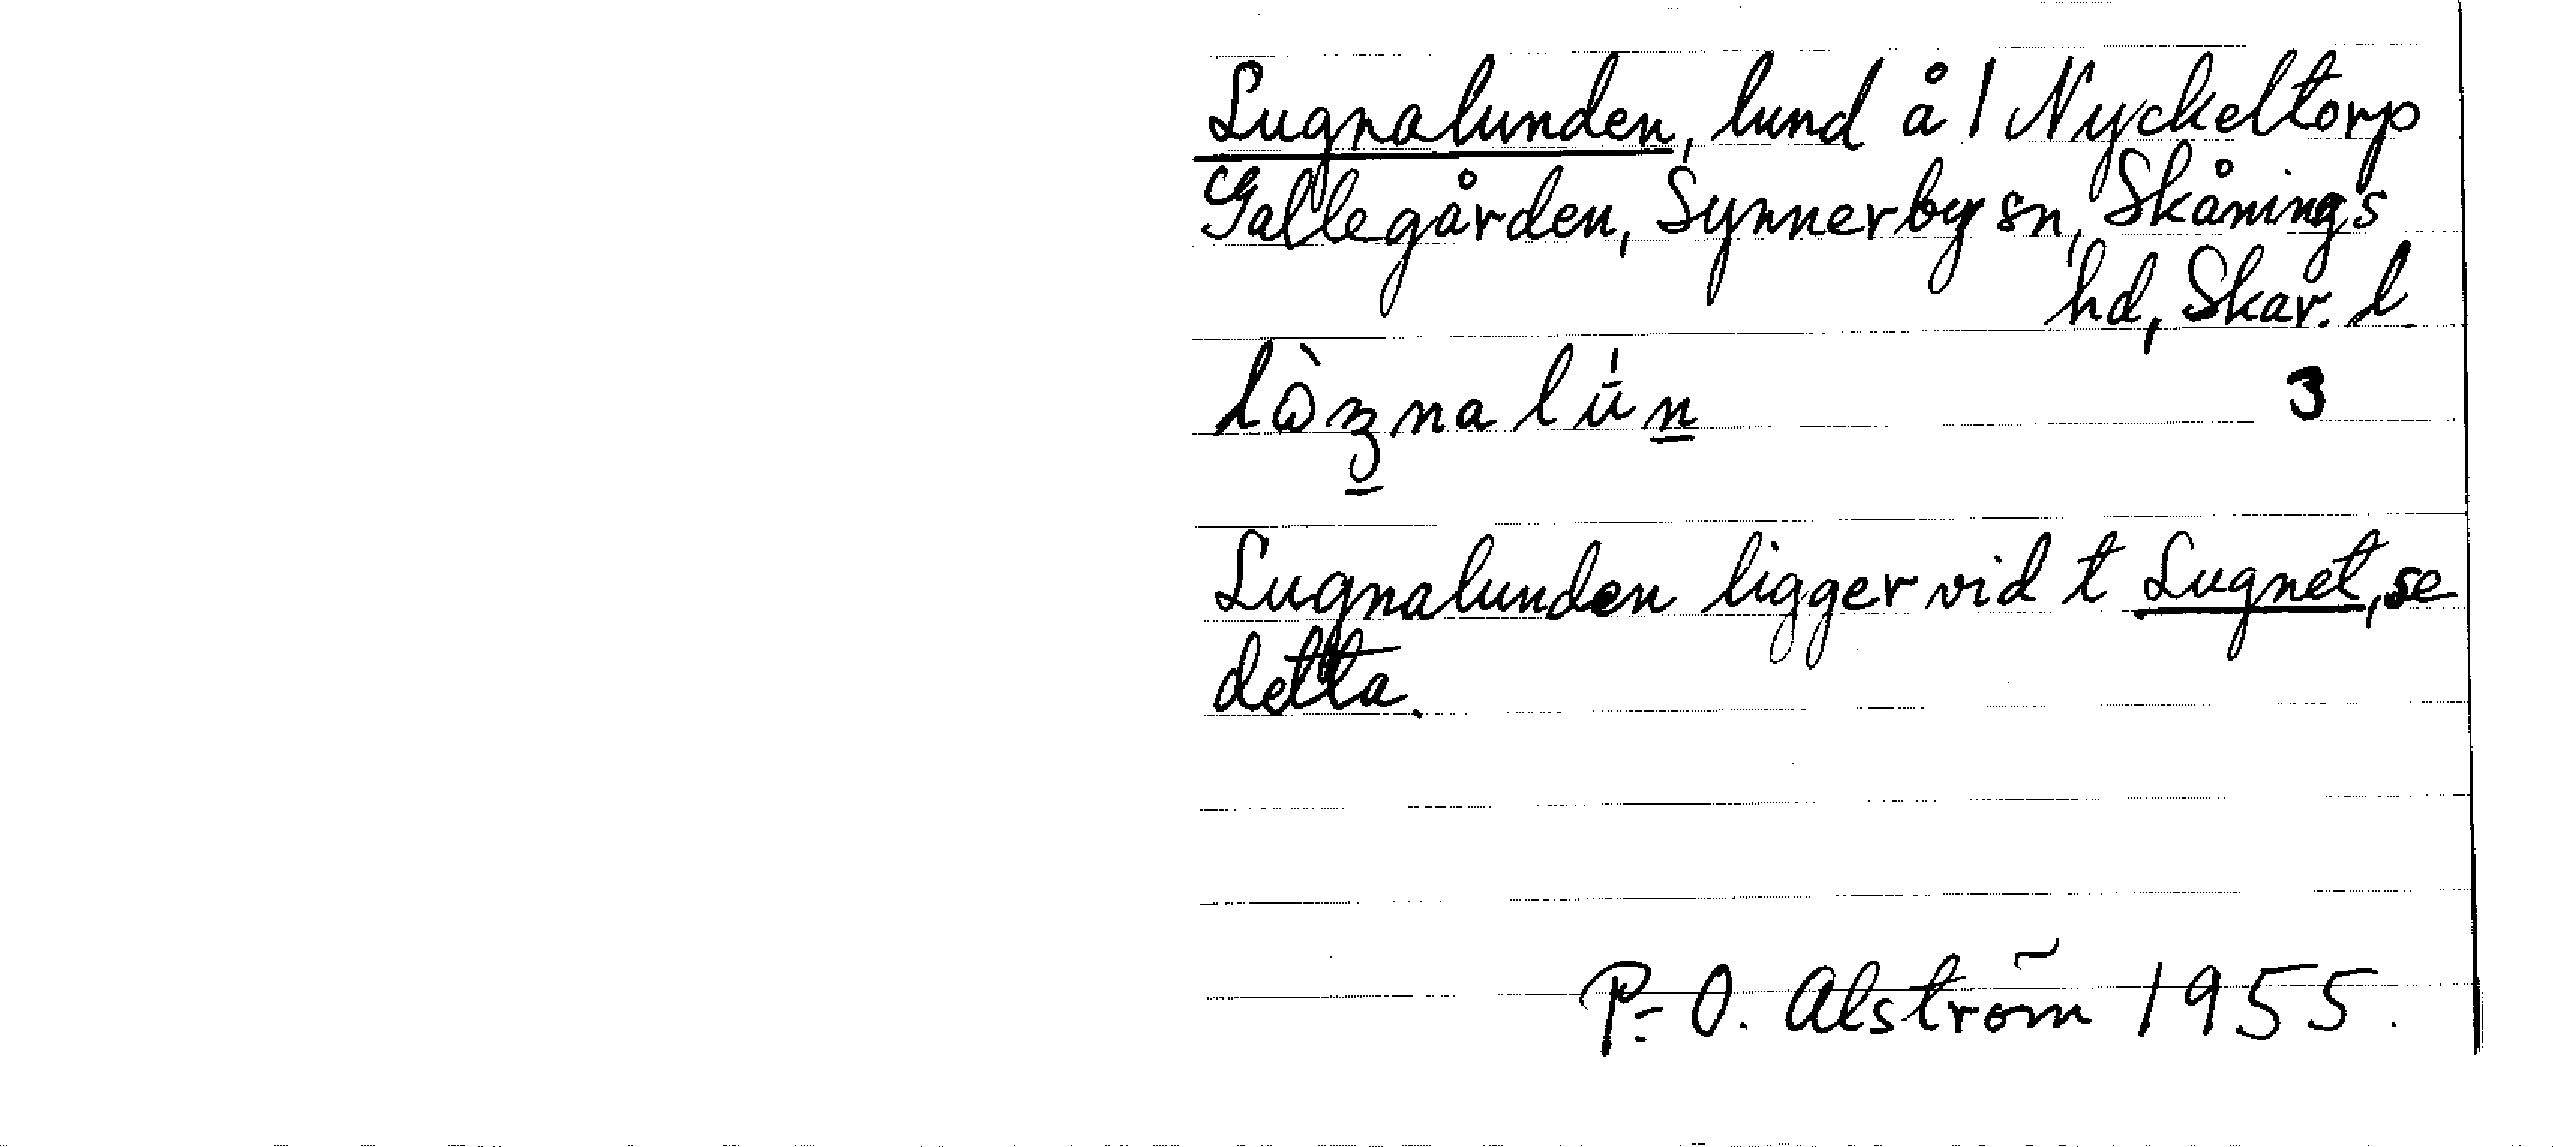 Lugnalunden, lund å 1 Nyckeltorp
Gallegården, Synnerby sn, Skånings
hd, Skar. l
3
Lugnalunden ligger vid t Lugnet, se
detta.
P.-O. Alström 1955.